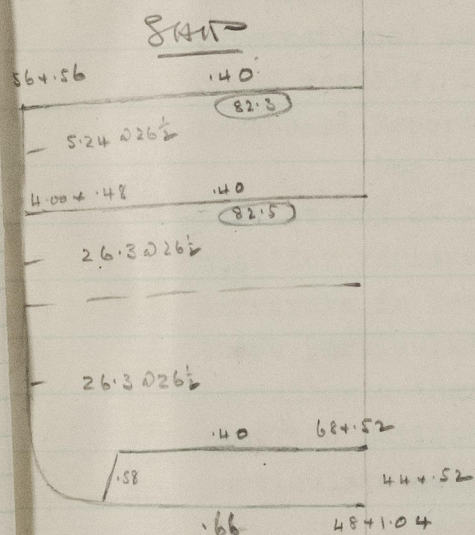 56 × .56 .40
82.3
5.24 @ 26½
4.00 × .48 .40
82.5
26.3 @ 26½
26.3 @ 26½
.40 68 × .52
.58 44 × .52
.66 48 × 1.04